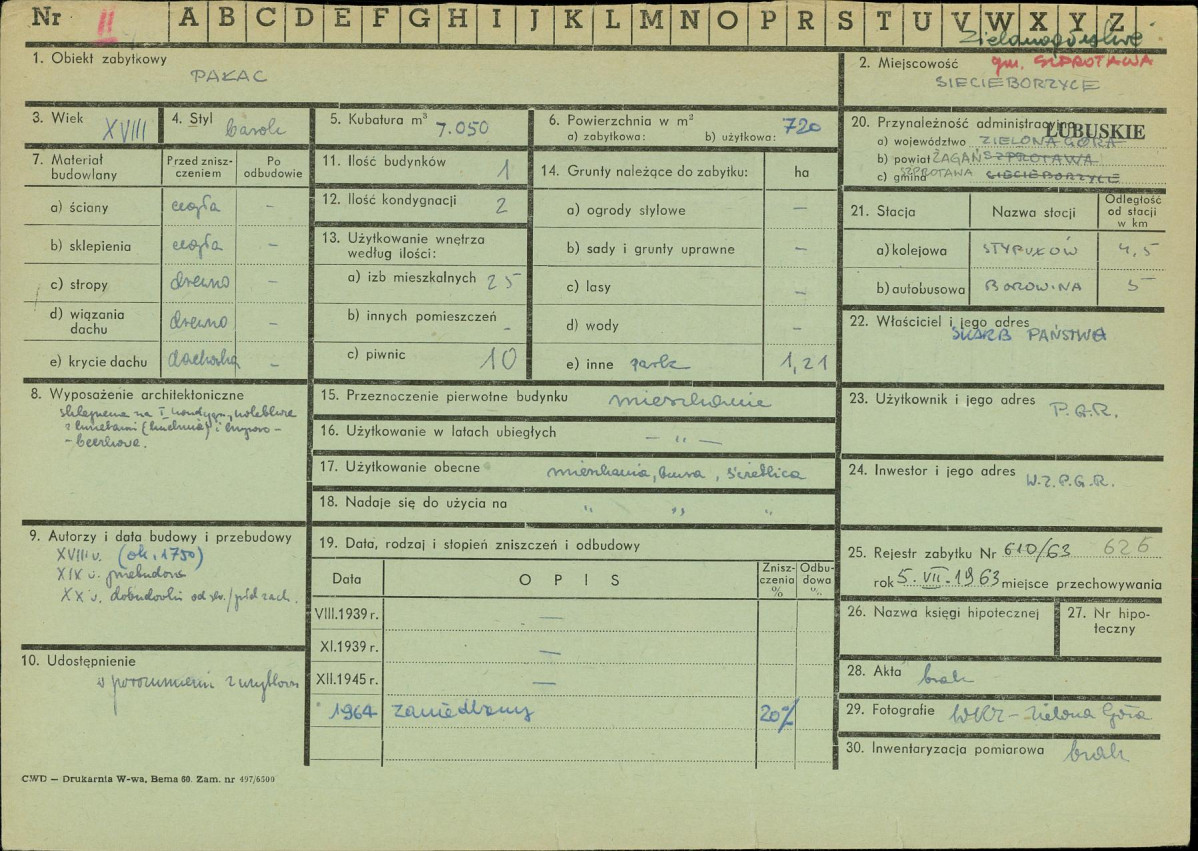 Nr II A B C D E F G H I J K L M N O P R S T U V W X Y Z
zielonogórskie
1. Obiekt zabytkowy
PAŁAC
2. Miejscowość gm. SZPROTAWA
SIECIEBORZYCE
3. Wiek XVIII
4. Styl barok
5. Kubatura m³ 7.050
6. Powierzchnia w m²
a) zabytkowa: b) użytkowa: 720
20. Przynależność administracyjna
ŁUBUSKIE
a) województwo ZIELONA GÓRA
b) powiat ŻAGAŃ SZPROTAWA
c) gmina SZPROTAWA SIECIEBORZYCE
7. Materiał budowlany
Przed zniszczeniem
Po odbudowie
a) ściany cegła –
b) sklepienia cegła –
c) stropy drewno –
d) wiązania dachu drewno –
e) krycie dachu dachówka –
11. Ilość budynków 1
12. Ilość kondygnacji 2
13. Użytkowanie wnętrza
według ilości:
a) izb mieszkalnych 25
b) innych pomieszczeń -
c) piwnic 10
14. Grunty należące do zabytku: ha
a) ogrody stylowe –
b) sady i grunty uprawne –
c) lasy –
d) wody –
e) inne park 1,21
21. Stacja
Nazwa stacji
Odległość od stacji w km
a) kolejowa STYPUŁÓW 4,5
b) autobusowa BOROWINA 5
22. Właściciel i jego adres
SKARB PAŃSTWA
8. Wyposażenie architektoniczne
sklepienia na I kondygn. kolebkowe
z lunetami (kuchnia) i krzyżowo-
-beczkowa.
15. Przeznaczenie pierwotne budynku mieszkanie
16. Użytkowanie w latach ubiegłych — " —
17. Użytkowanie obecne mieszkania, biura, świetlica
18. Nadaje się do użycia na " " "
23. Użytkownik i jego adres
P.G.R.
24. Inwestor i jego adres
W.Z.P.G.R.
9. Autorzy i data budowy i przebudowy
XVIII w. (ok. 1750)
XIX w. przebudowa
XX w. dobudówki od
19. Data, rodzaj i stopień zniszczenia i odbudowy
Data
O P I S
Zniszczenia %
Odbudowa %
VIII.1939 r. —
XI.1939 r. —
XII.1945 r. —
1964 zaniedbany 20%
25. Rejestr zabytku Nr 610/63 626
rok 5.VII.1963 miejsce przechowywania
26. Nazwa księgi hipotecznej
27. Nr hipoteczny
10. Udostępnienie
w porozumieniu z użytkown
28. Akta brak
29. Fotografie WKZ – Zielona Góra
30. Inwentaryzacja pomiarowa brak
CWD — Drukarnia W-wa, Bema 60. Zam. nr 497/6500